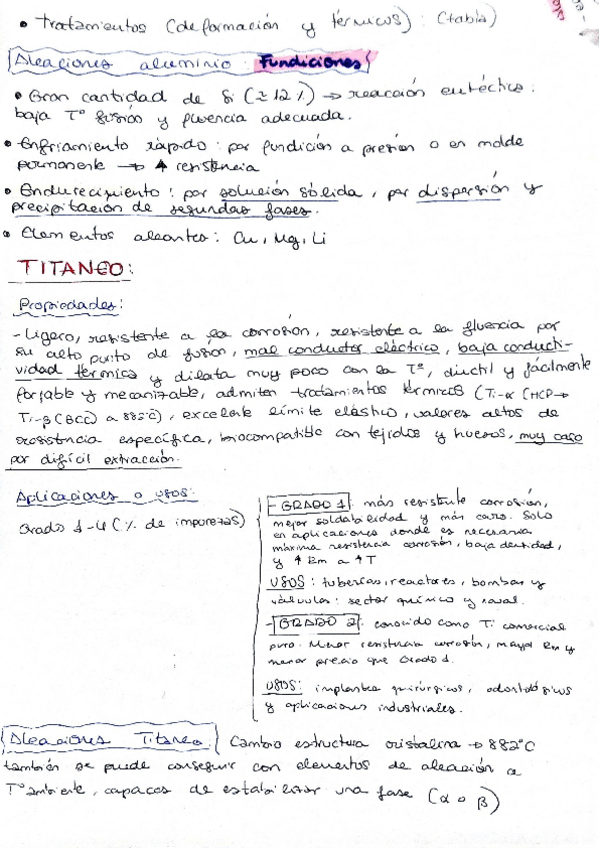 • Tratamientos (deformación y térmicos) : (tabla)
Aleaciones aluminio : Fundiciones
• Gran cantidad de Si (≈12%) → reacción eutéctica :
baja Tº fusión y fluencia adecuada.
• Enfriamiento rápido : por fundición a presión o en molde
permanente → ↑ resistencia
• Endurecimiento : por solución sólida, por dispersión y
precipitación de segundas fases.
• Elementos aleantes : Cu, Mg, Li
TITANEO :
Propiedades :
- Ligero, resistente a la corrosión, resistente a la fluencia por
su alto punto de fusión, mal conductor eléctrico, baja conducti-
vidad térmica y dilata muy poco con la Tº, dúctil y fácilmente
forjable y mecanizable, admiten tratamientos térmicos (Ti-α (HCP→
Ti-β (BCC) a 882ºC), excelente límite elástico, valores altos de
resistencia específica, biocompatible con tejidos y huesos, muy caro
por difícil extracción.
Aplicaciones o usos :
Grado 1-4 (% de impurezas)
- GRADO 1 : más resistente corrosión,
mejor soldabilidad y más caro. Solo
en aplicaciones donde es necesaria
máxima resistencia corrosión, baja densidad,
y ↑ Em a ↑T
USOS : tuberías, reactores, bombas y
válvulas : sector químico y naval.
- GRADO 2 : conocido como Ti comercial
puro. Menor resistencia corrosión, mayor Em y
menor precio que Grado 1.
USOS : implantes quirúrgicos, odontológicos
y aplicaciones industriales.
Aleaciones Titaneo : Cambio estructura cristalina → 882ºC
también se puede conseguir con elementos de aleación a
Tº ambiente, capaces de estabilizar una fase (α o β)